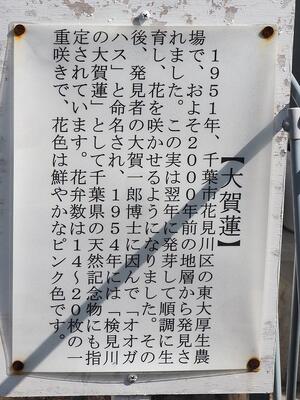 【大賀蓮】
１９５１年、千葉市花見川区の東大厚生農
場で、およそ２０００年前の地層から発見さ
れました。この実は翌年に発芽して順調に生
育し、花を咲かせるようになりました。その
後、発見者の大賀一郎博士に因んで「オオガ
ハス」と命名され、１９５４年には「検見川
の大賀蓮」として千葉県の天然記念物にも指
定されています。花弁数は１４～２０枚の一
重咲きで、花色は鮮やかなピンク色です。